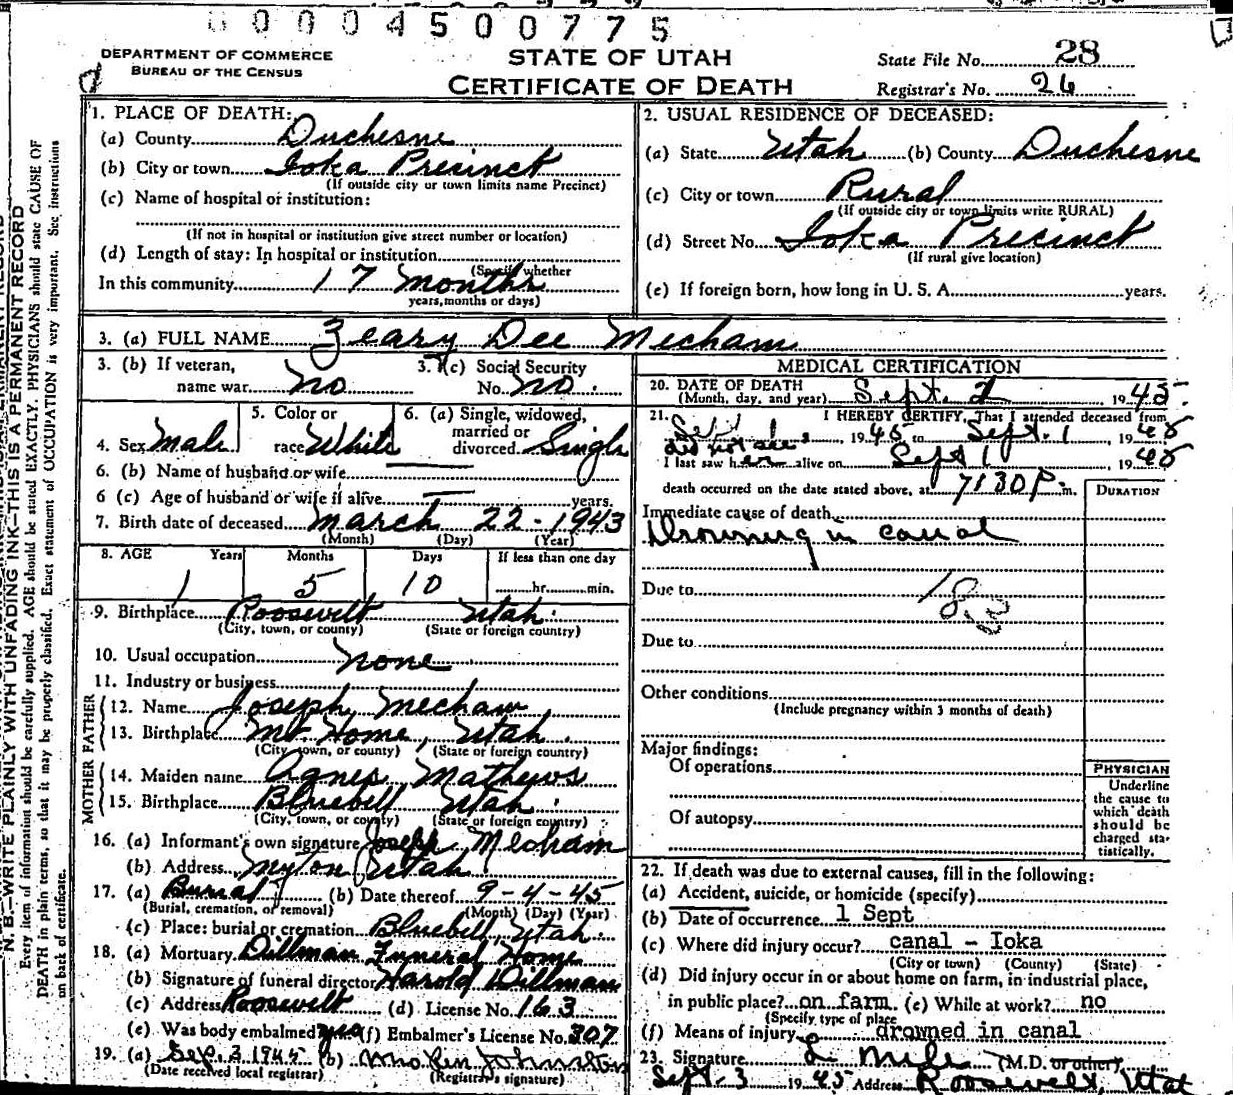 00004500775
DEPARTMENT OF COMMERCE
BUREAU OF THE CENSUS
STATE OF UTAH
CERTIFICATE OF DEATH
State File No. 28
Registrar's No. 26
N. B.—WRITE PLAINLY WITH UNFADING INK—THIS IS A PERMANENT RECORD
Every item of information should be carefully supplied. AGE should be stated EXACTLY. PHYSICIANS should state CAUSE OF
DEATH in plain terms, so that it may be properly classified. Exact statement of OCCUPATION is very important. See instructions
on back of certificate.
1. PLACE OF DEATH:
(a) County Duchesne
(b) City or town Ioka Precinct
(If outside city or town limits name Precinct)
(c) Name of hospital or institution:
(If not in hospital or institution give street number or location)
(d) Length of stay: In hospital or institution
(Specify whether
In this community 17 months
years, months or days)
2. USUAL RESIDENCE OF DECEASED:
(a) State Utah (b) County Duchesne
(c) City or town Rural
(If outside city or town limits write RURAL)
(d) Street No. Ioka Precinct
(If rural give location)
(e) If foreign born, how long in U. S. A. years.
3. (a) FULL NAME Zeary Dee Mecham
3. (b) If veteran,
name war no
3. (c) Social Security
No. no.
4. Sex Male
5. Color or
race White
6. (a) Single, widowed,
married or
divorced Single
6. (b) Name of husband or wife
6 (c) Age of husband or wife if alive years.
7. Birth date of deceased March 22 - 1943
(Month) (Day) (Year)
8. AGE Years Months Days If less than one day
1 5 10 hr. min.
9. Birthplace Roosevelt Utah.
(City, town, or county) (State or foreign country)
10. Usual occupation none
11. Industry or business
FATHER
12. Name Joseph Mecham
13. Birthplace Mt. Home, Utah.
(City, town, or county) (State or foreign country)
MOTHER
14. Maiden name Agnes Mathews
15. Birthplace Bluebell Utah.
(City, town, or county) (State or foreign country)
16. (a) Informant's own signature Joseph Mecham
(b) Address Myton Utah
17. (a) Burial (b) Date thereof 9-4-45
(Burial, cremation, or removal) (Month) (Day) (Year)
(c) Place: burial or cremation Bluebell Utah.
18. (a) Mortuary Dillman Funeral Home
(b) Signature of funeral director Harold Dillman
(c) Address Roosevelt (d) License No. 163
(e) Was body embalmed yes (f) Embalmer's License No. 307
19. (a) Sep. 3 1945 (b) Mrs Ken Johnston
(Date received local registrar) (Registrar's signature)
MEDICAL CERTIFICATION
20. DATE OF DEATH
(Month, day, and year) Sept. 1945
21. I HEREBY CERTIFY, That I attended deceased from
Sept 1, 1945 to Sept. 1 1945
did not see
I last saw h alive on Sept 1 1945
death occurred on the date stated above, at 7:30 P. m.
DURATION
Immediate cause of death
Drowning in canal
Due to 183
Due to
Other conditions
(Include pregnancy within 3 months of death)
Major findings:
Of operations
Of autopsy
PHYSICIAN
Underline
the cause to
which death
should be
charged sta-
tistically.
22. If death was due to external causes, fill in the following:
(a) Accident, suicide, or homicide (specify)
(b) Date of occurrence 1 Sept
(c) Where did injury occur? canal - Ioka
(City or town) (County) (State)
(d) Did injury occur in or about home on farm, in industrial place,
in public place? on farm (e) While at work? no
(Specify type of place
(f) Means of injury drowned in canal
23. Signature (M.D. or other)
Sept. 3 1945 Address Roosevelt, Utah